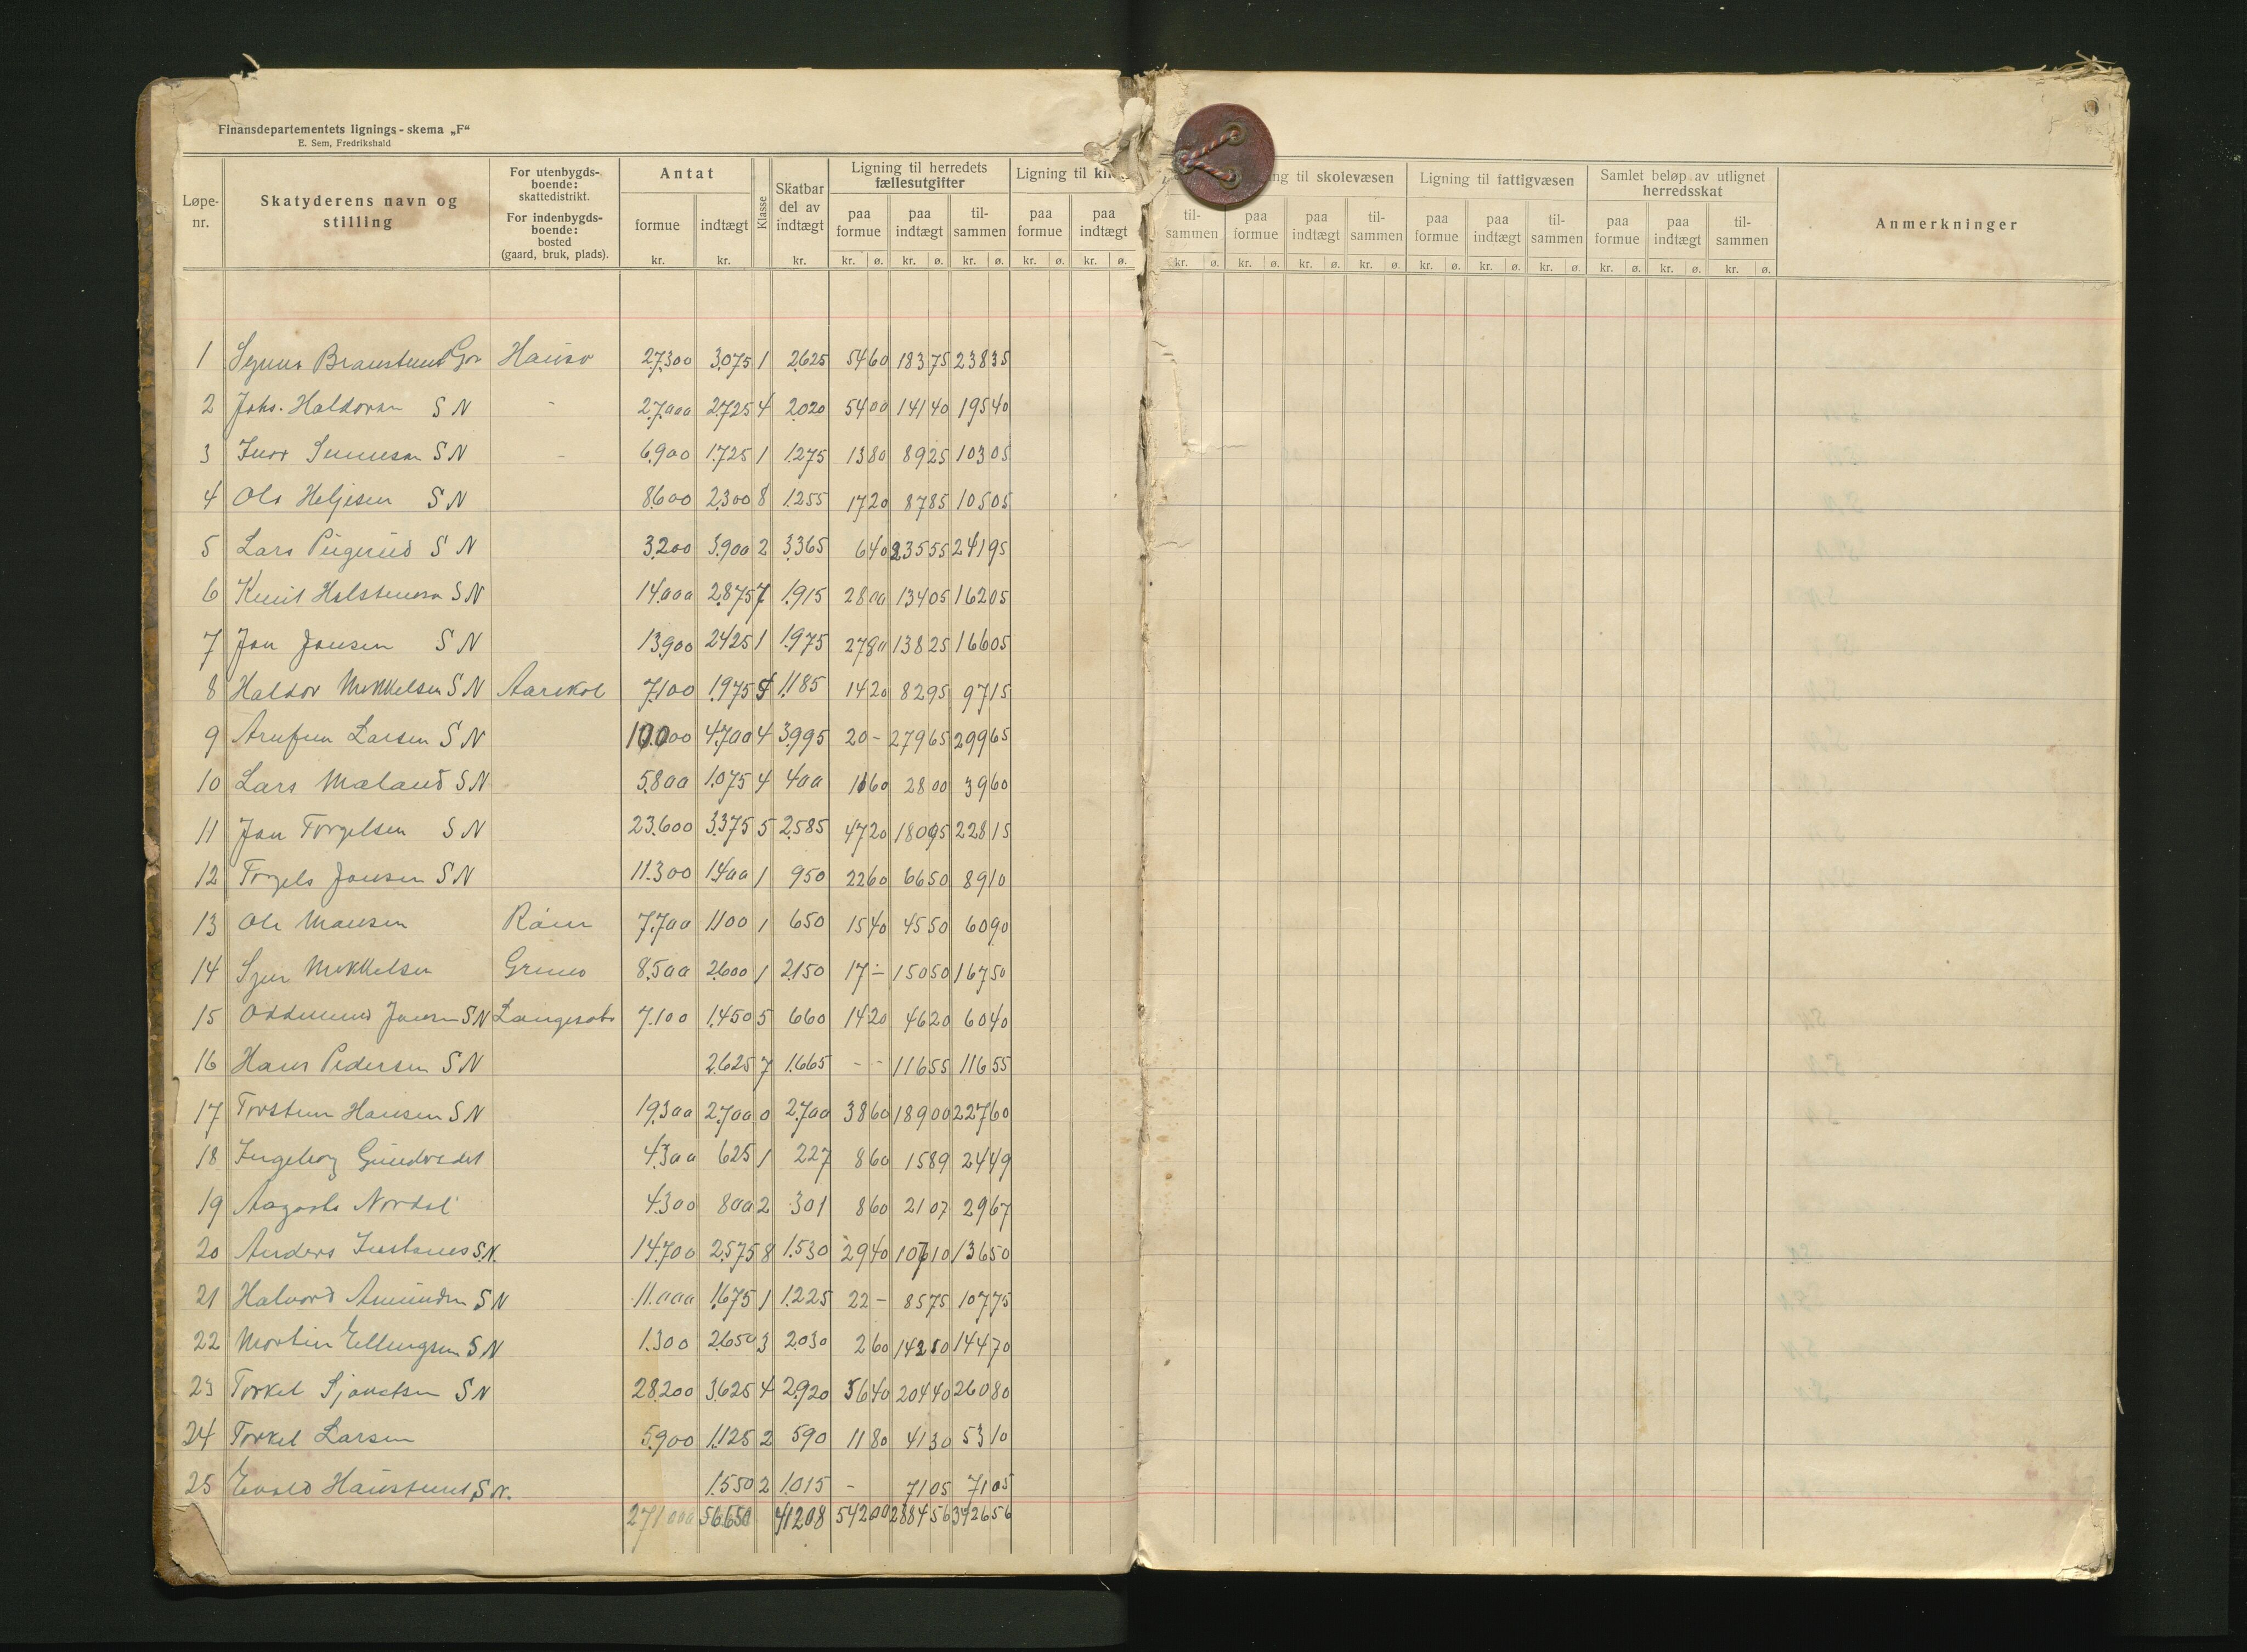 Finansdepartementets lignings-skema „F“
E. Sem, Fredrikshald
Løpe-nr. Skatyderens navn og stilling For utenbygds-boende: skattedistrikt. For indenbygds-boende: bosted (gaard, bruk, plads). Antat formue kr. indtægt kr. Klasse Skatbar del av indtægt kr. Ligning til herredets fællesutgifter paa formue kr. ø. paa indtægt kr. ø. til-sammen kr. ø. Ligning til paa formue kr. ø. paa indtægt kr. ø. til-sammen kr. ø. til skolevæsen paa formue kr. ø. paa indtægt kr. ø. til-sammen kr. ø. Ligning til fattigvæsen paa formue kr. ø. paa indtægt kr. ø. til-sammen kr. ø. Samlet beløp av utlignet herredsskat paa formue kr. ø. paa indtægt kr. ø. til-sammen kr. ø. Anmerkninger
1 27.300 3.075 1 2.625 54 60 183 75 238 35
2 Johs. Haldorsen S N - 27.000 2.725 4 2.020 54 00 141 40 195 40
3 S N - 6.900 1.725 1 1.275 13 80 89 25 103 05
4 Ole Heljesen S N 8.600 2.300 8 1.255 17 20 87 85 105 05
5 Lars S N 3.200 3.900 2 3.365 6 40 235 55 241 95
6 Knut Halstensen S N 14.000 2.875 7 1.915 28 00 134 05 162 05
7 Jon Jonsen S N 13.900 2425 1 1.975 27 80 138 25 166 05
8 Haldor Mikkelsen S N 7.100 1.975 5 1.185 14 20 82 95 97 15
9 Arnfinn Larsen S N 10.000 4.700 4 3.995 20 - 279 65 299 65
10 Lars Mæland S N 5.800 1.075 4 400 11 60 28 00 39 60
11 Jon Torgelsen S N 23.600 3.375 5 2.585 47 20 180 95 228 15
12 Torgels Jonsen S N 11.300 1400 1 950 22 60 66 50 89 10
13 Ole Monsen 7.700 1100 1 650 15 40 45 50 60 90
14 Sjur Mikkelsen 8.500 2600 1 2150 17 - 150 50 167 50
15 Oddmund Jonsen S N 7.100 1.450 5 660 14 20 46 20 60 40
16 Hans Pedersen S N 2.625 7 1.665 - - 116 55 116 55
17 Torstein Hansen S N 19.300 2.700 0 2.700 38 60 189 00 227 60
18 Ingeborg 4.300 625 1 227 8 60 15 89 24 49
19 Aagoth 4.300 800 2 301 8 60 21 07 29 67
20 Anders S.N. 14.700 2.575 8 1.530 29 40 107 10 136 50
21 Halvord Amundsen S N 11.000 1.675 1 1.225 22 - 85 75 107 75
22 Martin Ellingsen S N 1.300 2.650 3 2.030 2 60 142 10 144 70
23 Torkel S N 28.200 3.625 4 2.920 56 40 204 40 260 80
24 Torkel Larsen 5.900 1.125 2 590 11 80 41 30 53 10
25 S.N. 1.550 2 1.015 - 71 05 71 05
271000 56650 41208 542 00 2884 56 3426 56